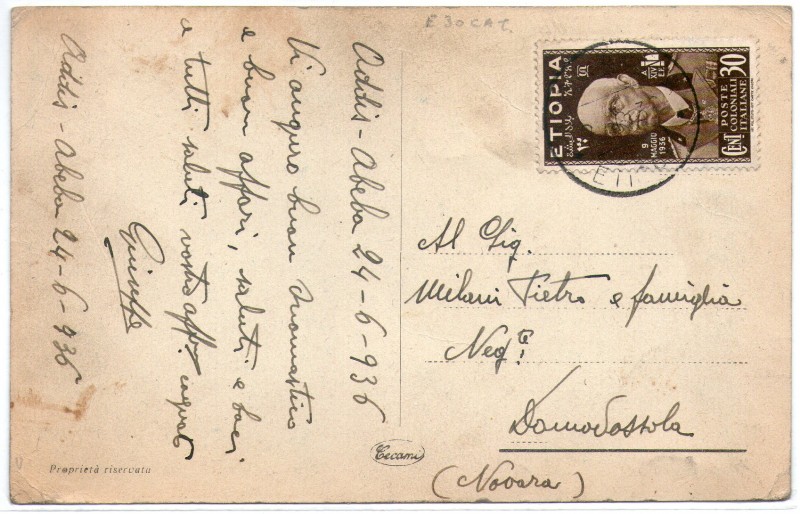 Addis-Abeba 24-6-936
Vi auguro buon Onomastico
e buon affari, saluti e baci
a tutti saluti vostro aff. cognato
Giuseppe
Addis-Abeba 24-6-936
Proprietà riservata
Tecami
E 30 CAT.
ETIOPIA
9
MAGGIO
1936
A
XIV
E.F.
POSTE
COLONIALI
ITALIANE
CENT 30
Al Sig.
Milani Pietro e famiglia
Negte
Domodossola
(Novara)